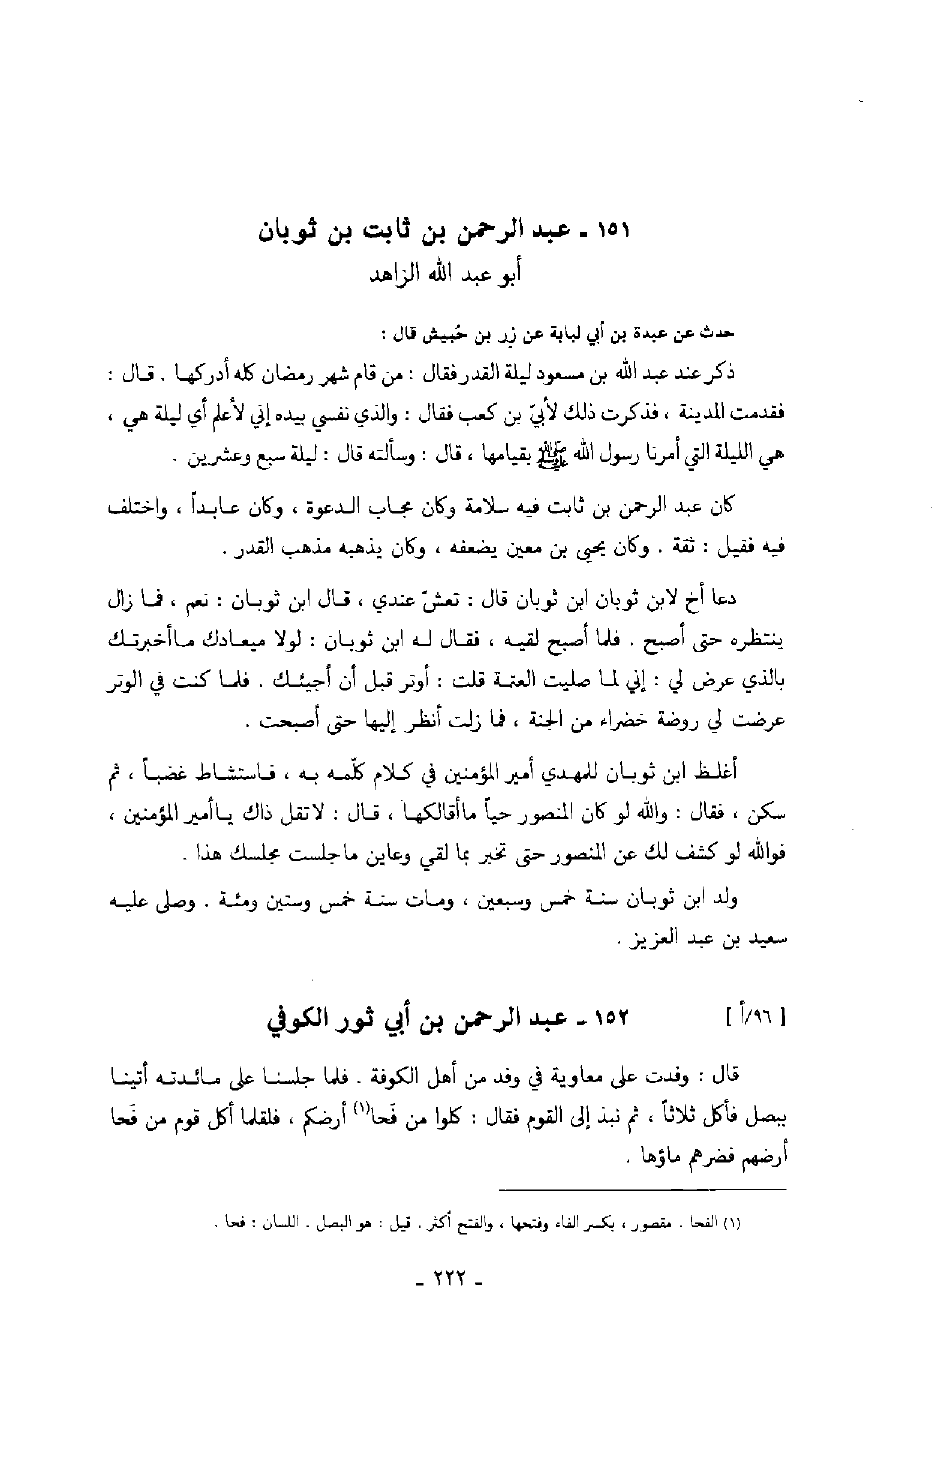 ١٥١ ـ عبد الرحمن بن ثابت بن ثوبان
أبو عبد الله الزاهد
حدث عن عبدة بن أبي لبابة عن زر بن حُبيش قال :
ذكر عند عبد الله بن مسعود ليلة القدر فقال : من قام شهر رمضان كله أدركها . قال :
فقدمت المدينة ، فذكرت ذلك لأبيّ بن كعب فقال : والذي نفسي بيده إني لأعلم أي ليلة هي ،
هي الليلة التي أمرنا رسول الله ﷺ بقيامها ، قال : وسألته قال : ليلة سبع وعشرين .
كان عبد الرحمن بن ثابت فيه سلامة وكان مجاب الدعوة ، وكان عابداً ، واختلف
فيه فقيل : ثقة . وكان يحيى بن معين يضعفه ، وكان يذهبه مذهب القدر .
دعا أخ لابن ثوبان ابن ثوبان قال : تعشّ عندي ، قال ابن ثوبان : نعم ، فما زال
ينتظره حتى أصبح . فلما أصبح لقيه ، فقال له ابن ثوبان : لولا ميعادك ماأخبرتك
بالذي عرض لي : إني لما صليت العتمة قلت : أوتر قبل أن أجيئك . فلما كنت في الوتر
عرضت لي روضة خضراء من الجنة ، فما زلت أنظر إليها حتى أصبحت .
أغلظ ابن ثوبان للمهدي أمير المؤمنين في كلام كلّمه به ، فاستشاط غضباً ، ثم
سكن ، فقال : والله لو كان المنصور حياً ماأقالكها ، قال : لاتقل ذاك ياأمير المؤمنين ،
فوالله لو كشف لك عن المنصور حتى تخبر بما لقي وعاين ماجلست مجلسك هذا .
ولد ابن ثوبان سنة خمس وسبعين ، ومات سنة خمس وستين ومئة . وصلى عليه
سعيد بن عبد العزيز .
[ ٩٦/أ ] ١٥٢ ـ عبد الرحمن بن أبي ثور الكوفي
قال : وفدت على معاوية في وفد من أهل الكوفة . فلما جلسنا على مائدته أتينا
ببصل فأكل ثلاثاً ، ثم نبذ إلى القوم فقال : كلوا من فَحا(١) أرضكم ، فلقلما أكل قوم من فَحا
أرضهم فضرهم ماؤها .
(١) الفحا . مقصور ، بكسر الفاء وفتحها ، والفتح أكثر . قيل : هو البصل . اللسان : فحا .
ـ ٢٢٢ ـ